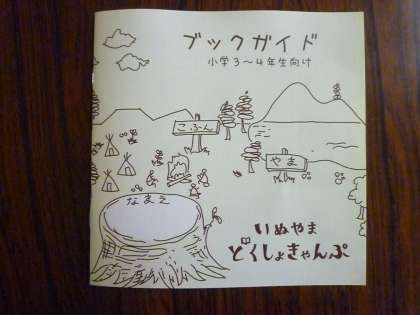 ブックガイド
小学3～4年生向け
こふん
やま
なまえ
いぬやま
どくしょきゃんぷ